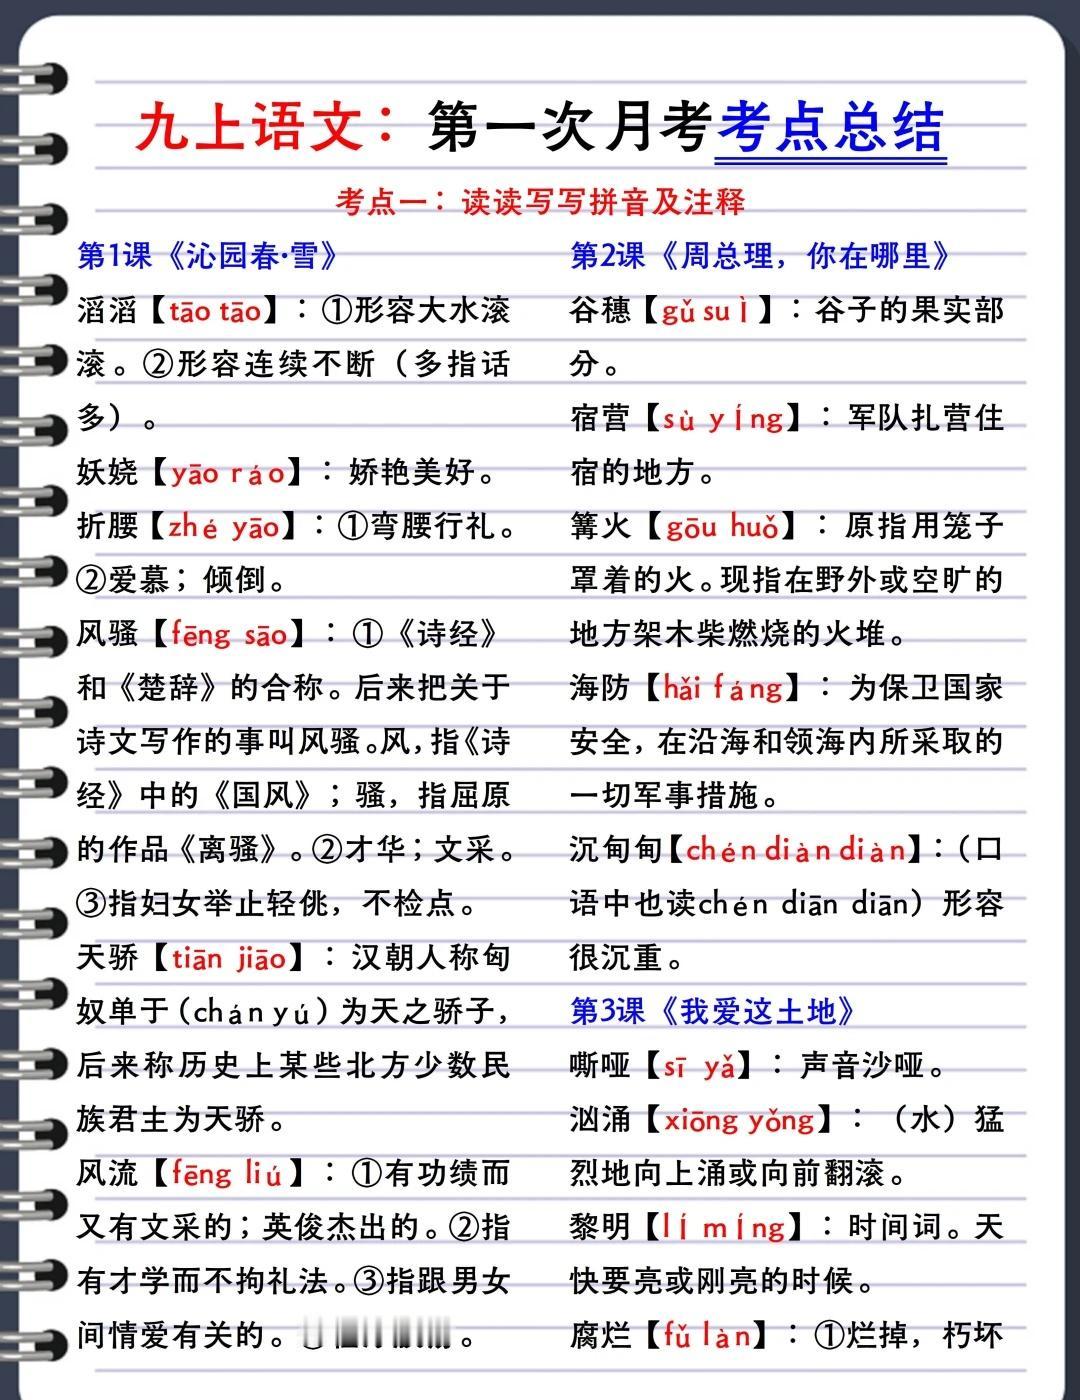 九上语文：第一次月考考点总结
考点一：读读写写拼音及注释
第1课《沁园春·雪》
滔滔【tāo tāo】：①形容大水滚
滚。②形容连续不断（多指话
多）。
妖娆【yāo ráo】：娇艳美好。
折腰【zhé yāo】：①弯腰行礼。
②爱慕；倾倒。
风骚【fēng sāo】：①《诗经》
和《楚辞》的合称。后来把关于
诗文写作的事叫风骚。风，指《诗
经》中的《国风》；骚，指屈原
的作品《离骚》。②才华；文采。
③指妇女举止轻佻，不检点。
天骄【tiān jiāo】：汉朝人称匈
奴单于（chán yú）为天之骄子，
后来称历史上某些北方少数民
族君主为天骄。
风流【fēng liú】：①有功绩而
又有文采的；英俊杰出的。②指
有才学而不拘礼法。③指跟男女
间情爱有关的。
第2课《周总理，你在哪里》
谷穗【gǔ suì】：谷子的果实部
分。
宿营【sù yíng】：军队扎营住
宿的地方。
篝火【gōu huǒ】：原指用笼子
罩着的火。现指在野外或空旷的
地方架木柴燃烧的火堆。
海防【hǎi fáng】：为保卫国家
安全，在沿海和领海内所采取的
一切军事措施。
沉甸甸【chén diàn diàn】：（口
语中也读chén diān diān）形容
很沉重。
第3课《我爱这土地》
嘶哑【sī yǎ】：声音沙哑。
汹涌【xiōng yǒng】：（水）猛
烈地向上涌或向前翻滚。
黎明【lí míng】：时间词。天
快要亮或刚亮的时候。
腐烂【fǔ làn】：①烂掉，朽坏